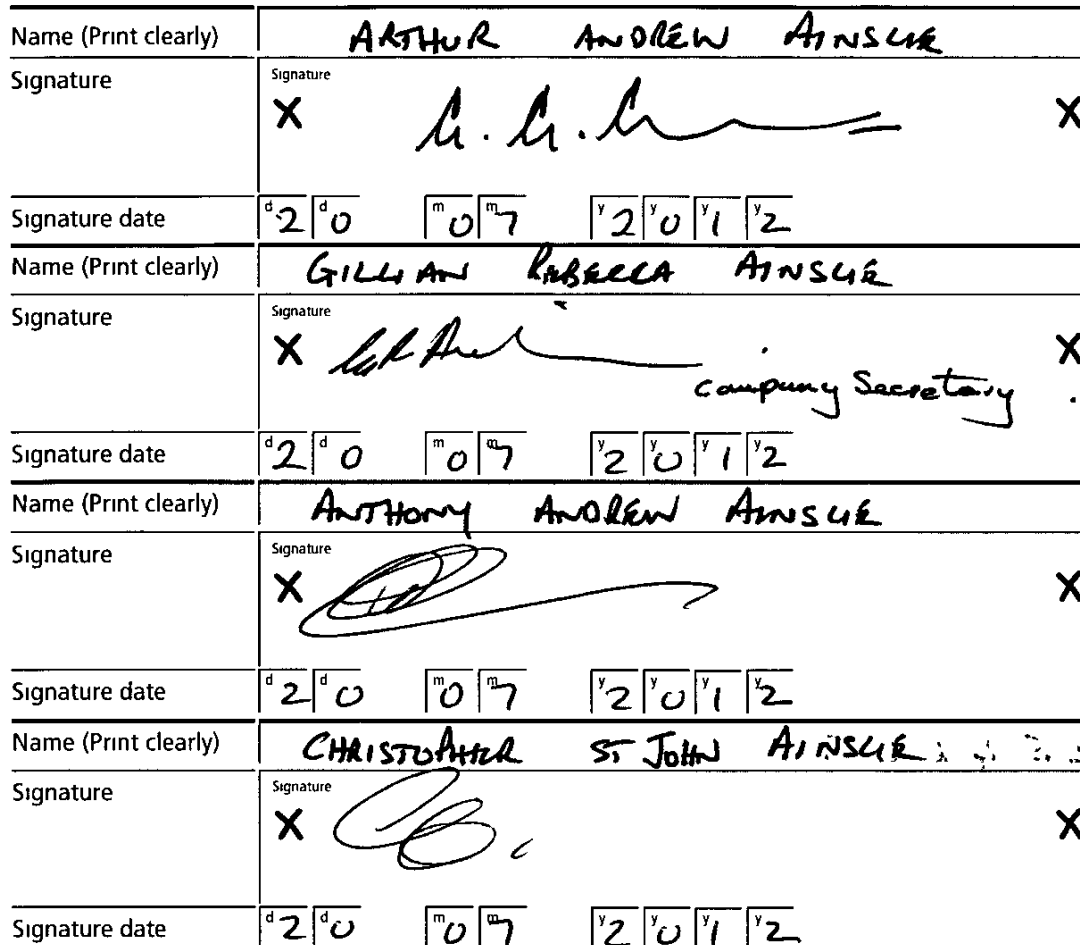 Name (Print clearly) ARTHUR ANDREW AINSLIE
Signature Signature
X X
Signature date d2 d0 m0 m7 y2 y0 y1 y2
Name (Print clearly) GILLIAN REBECCA AINSLIE
Signature Signature
X X
Company Secretary
Signature date d2 d0 m0 m7 y2 y0 y1 y2
Name (Print clearly) ANTHONY ANDREW AINSLIE
Signature Signature
X X
Signature date d2 d0 m0 m7 y2 y0 y1 y2
Name (Print clearly) CHRISTOPHER ST JOHN AINSLIE
Signature Signature
X X
Signature date d2 d0 m0 m7 y2 y0 y1 y2